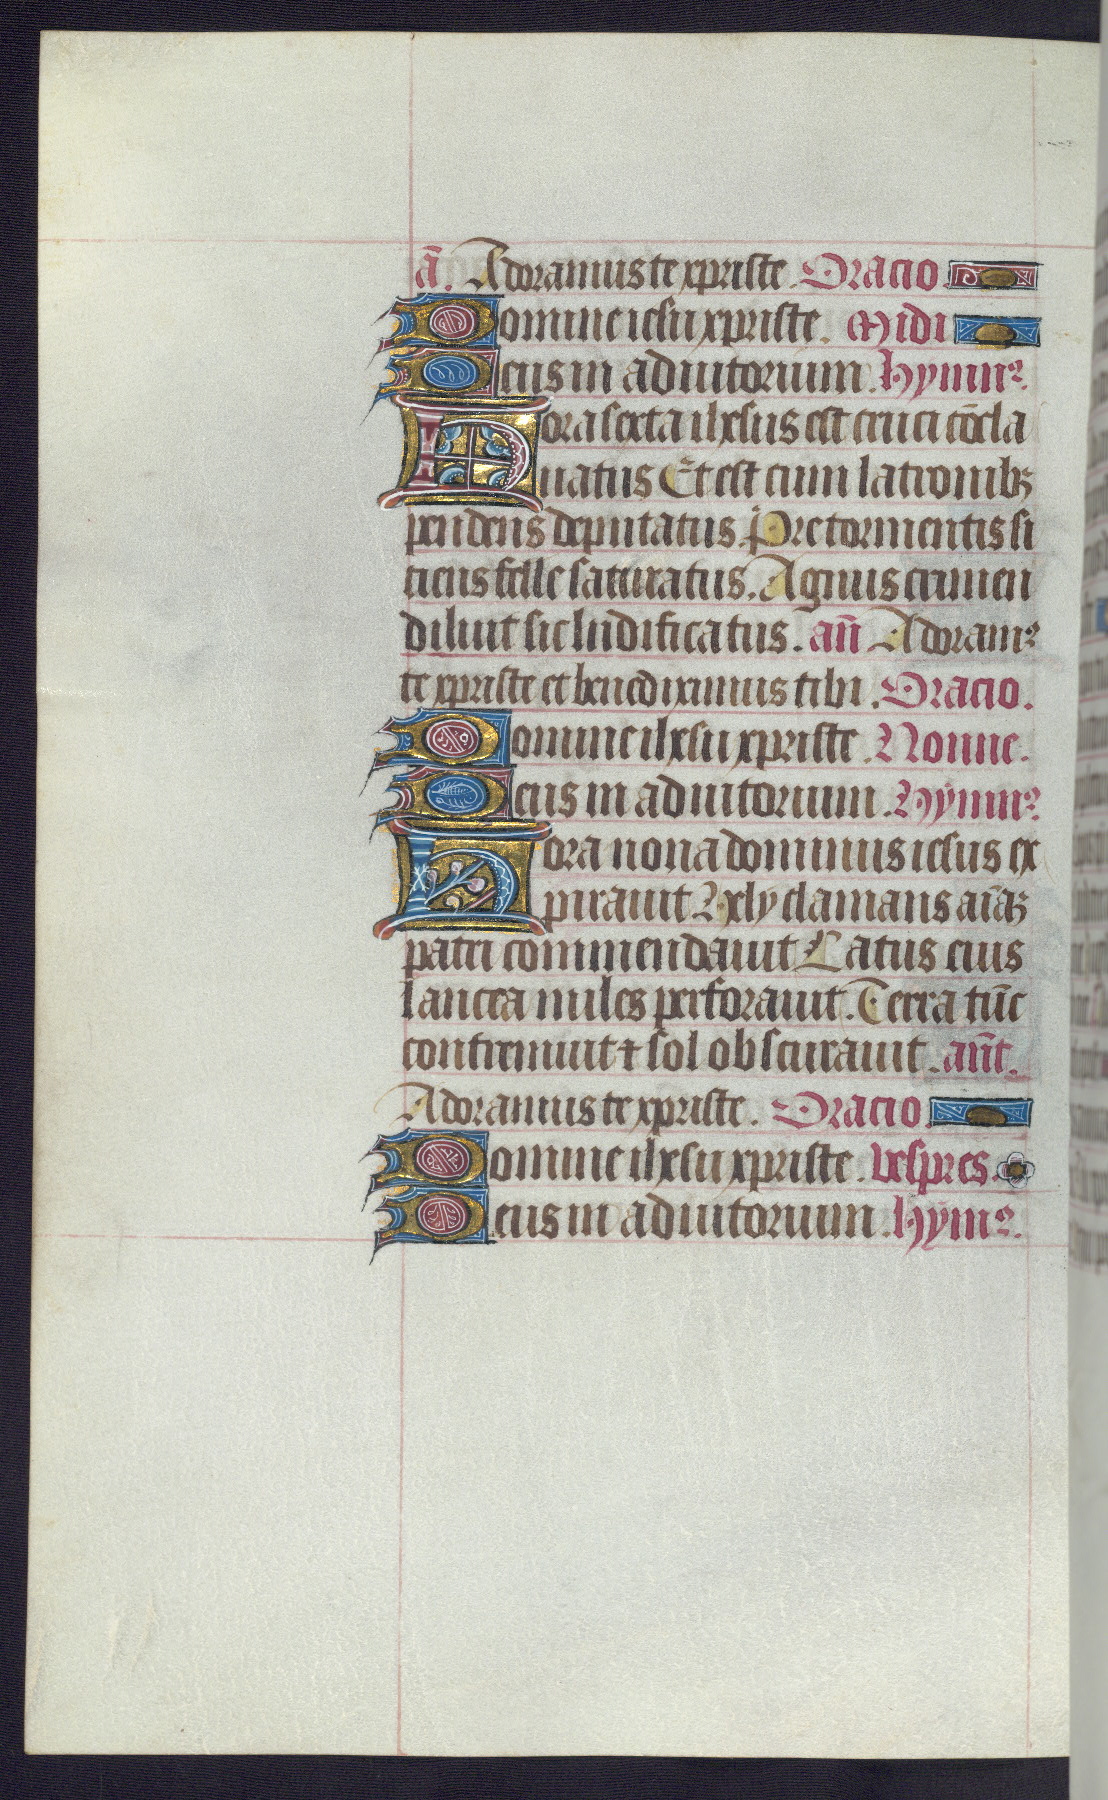 ā. Adoramus te xpriste. Oracio.
Domine iesu xpriste. Midi
Deus in adiutorium. hymnꝰ.
Hora sexta ihesus est cruci cōcla
uatus Et est cum latronibꝫ
pendens deputatus. Pre tormentis si
ciens felle saturatus. Agnus crimen
diluit sic ludificatus. an̄ Adoramꝰ
te xpriste et benediximus tibi. Oracio.
Domine ihesu xpriste. Nonne.
Deus in adiutorium. Hymnꝰ
Hora nona dominus iesus ex
pirauit hely clamans aīaꝫ
patri commendauit Latus eius
lancea miles perforauit. Terra tūc
contremuit ⁊ sol obscurauit. an̄t.
Adoramus te xpriste. Oracio.
Domine ihesu xpriste. vespres.
Deus in adiutorium. hymꝰ.